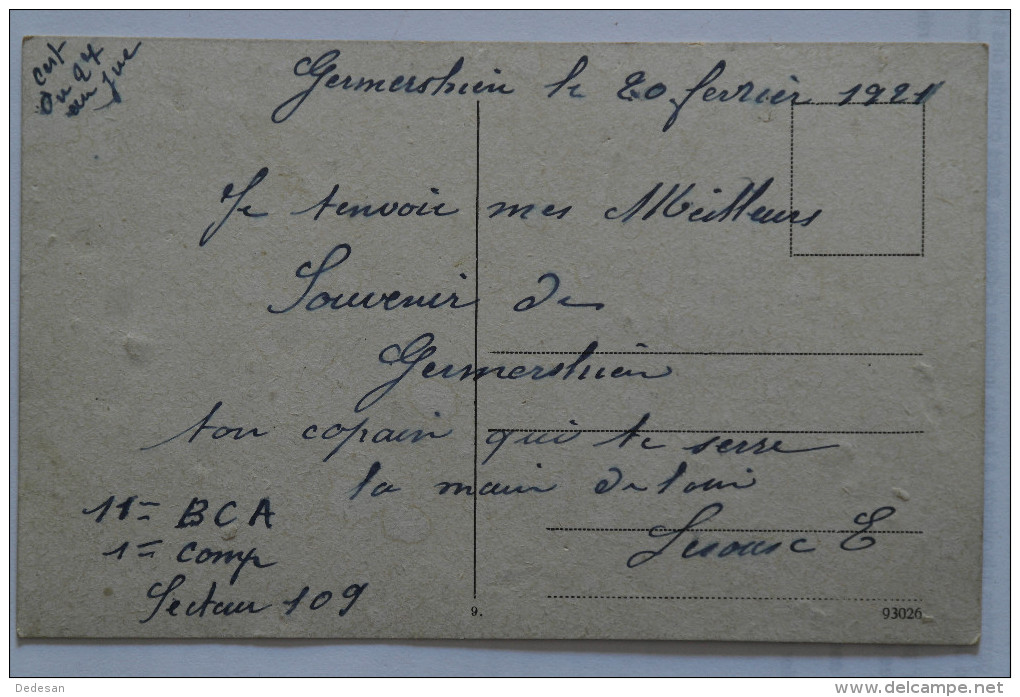 cest
du 24
au jus
Germershien le 20 fevrier 1921
Je tenvoie mes Meilleurs
Souvenir de
Germershien
ton copain qui te serre
la main de loin
E
11e BCA
1e comp
Secteur 109
9.
93026
Dedesan
www.delcampe.net